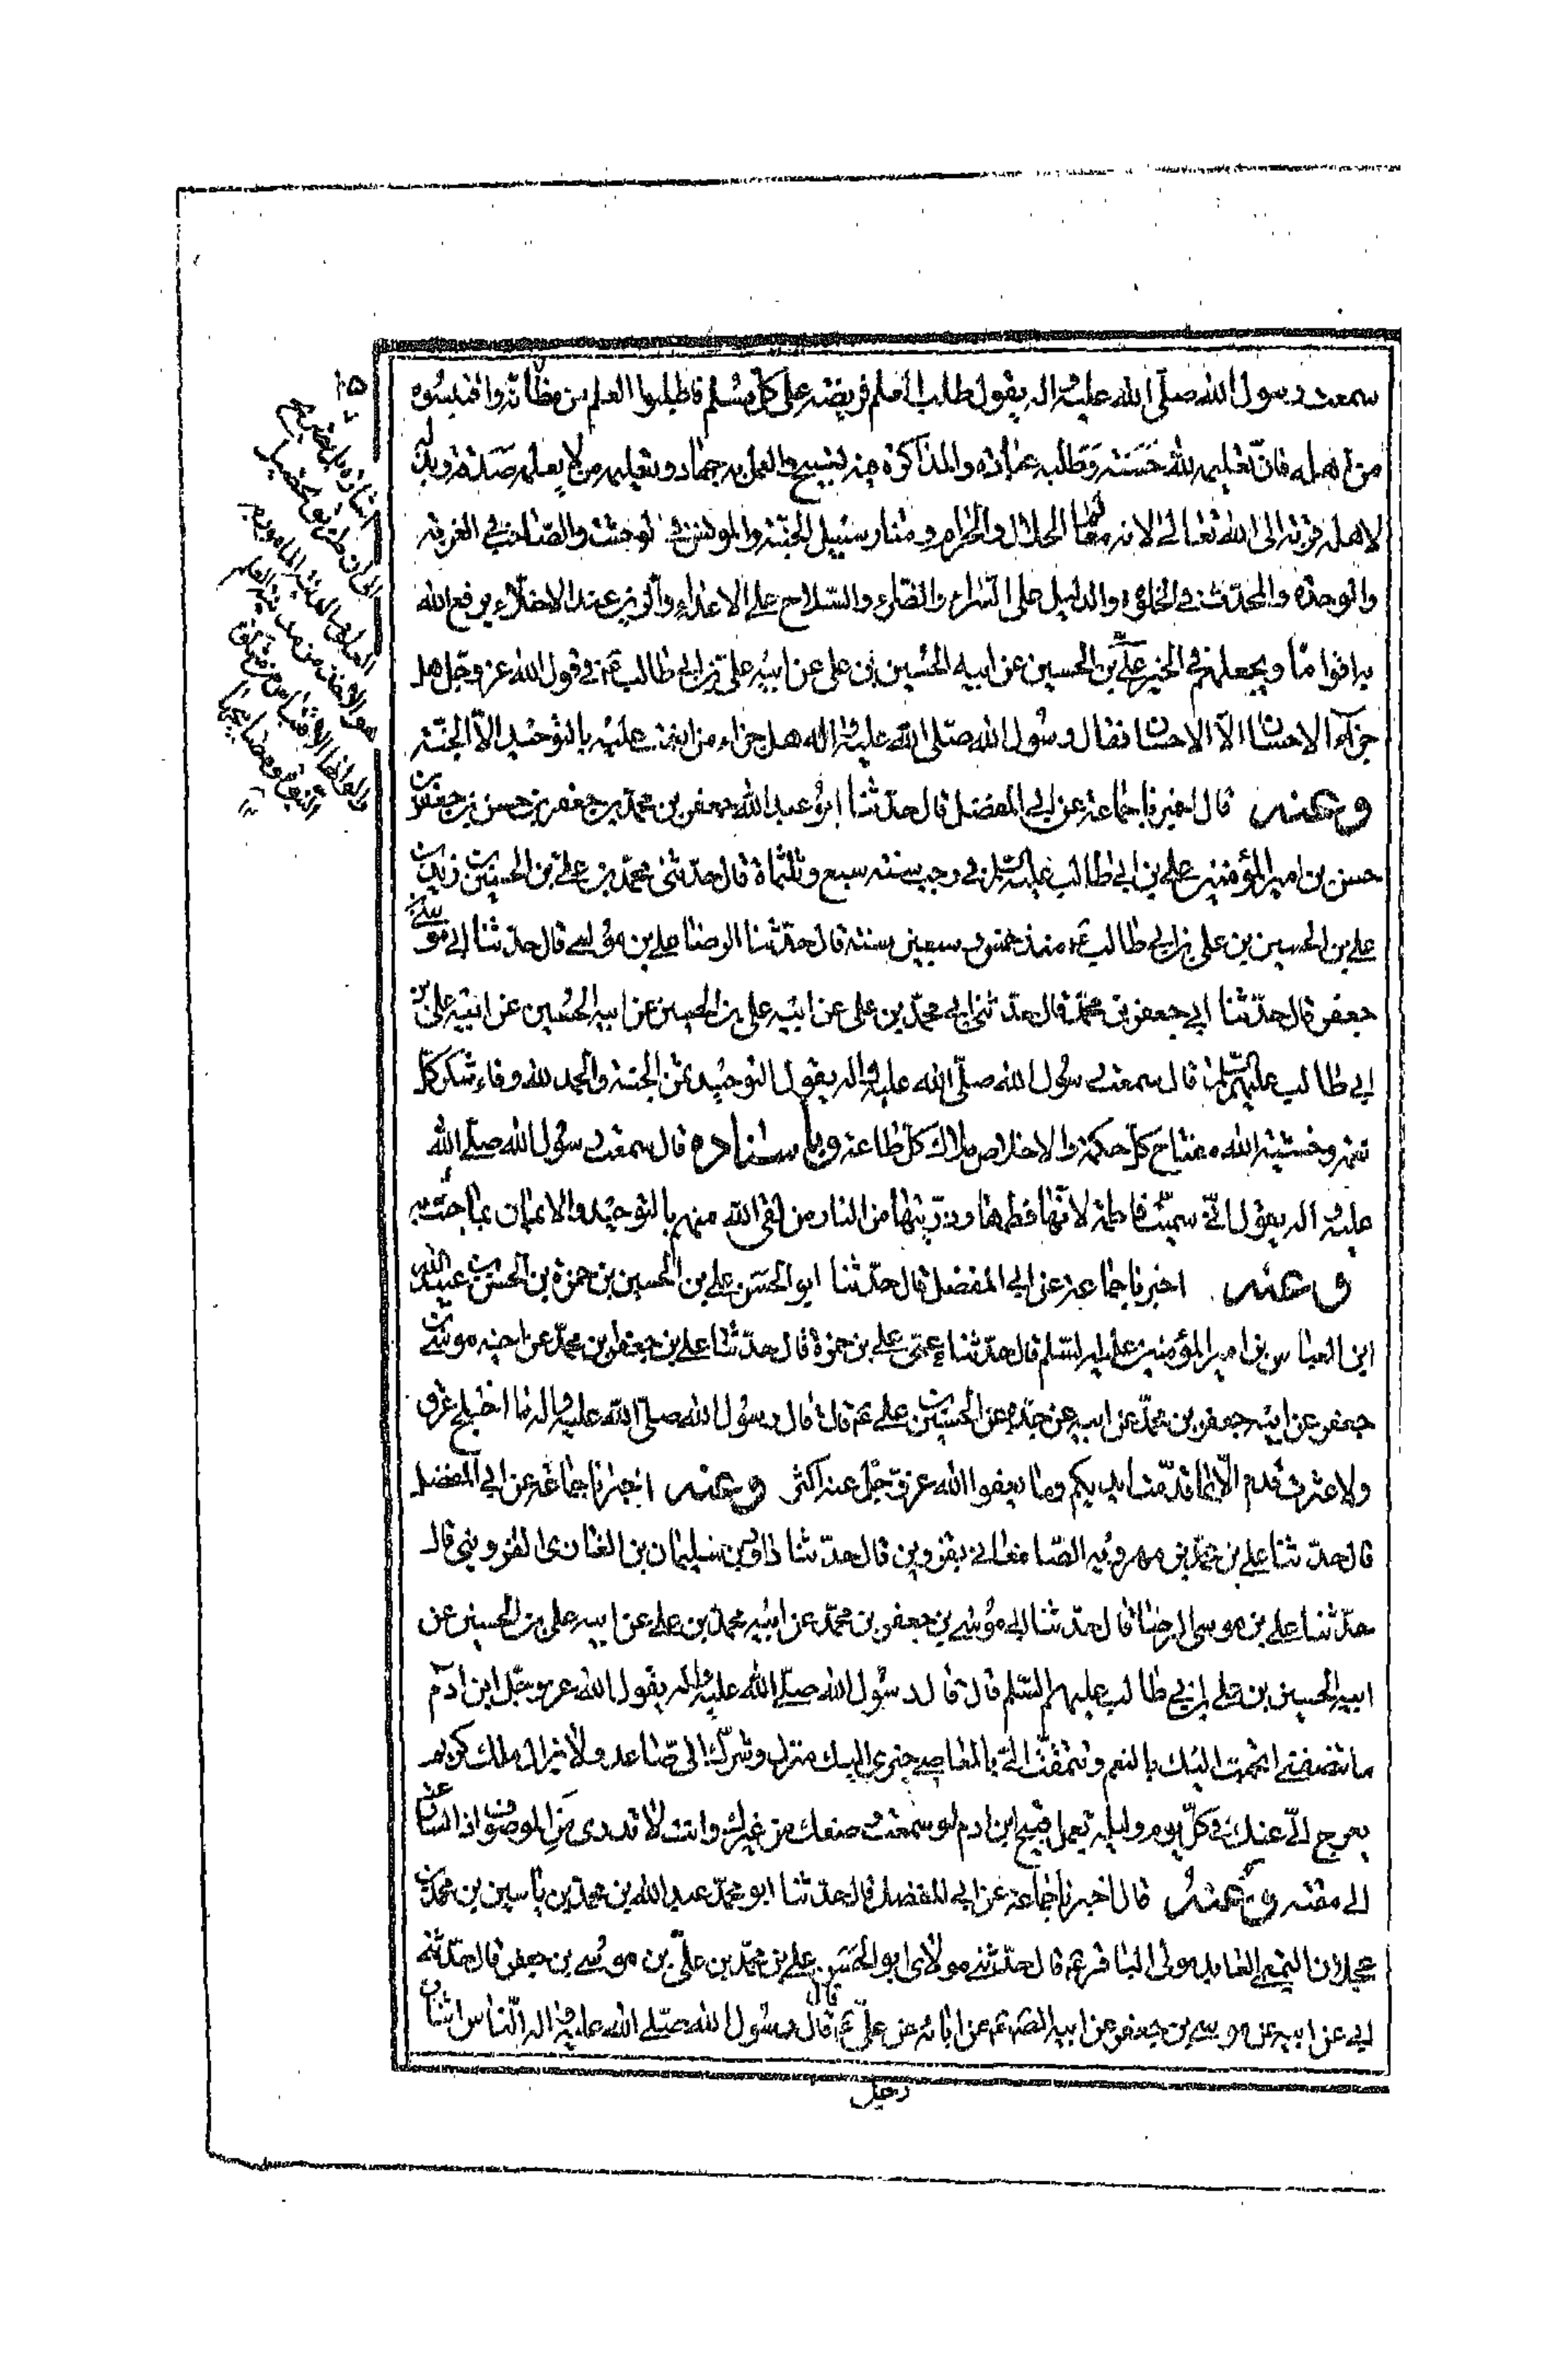 سمعت رسول الله صلّى الله عليه و اله يقول طلب العلم فريضة على كلّ مسلم فاطلبوا العلم من مظانّه واقتبسوه
من اهله فانّ تعليمه لله حسنة وطلبه عبادة والمذاكرة فيه تسبيح والعمل به جهاد وتعليمه من لا يعلمه صدقة وبذله
لاهله قربة الى الله تعالى لانه معالم الحلال والحرام ومنار سبيل الجنّة والمونس فى الوحشة والصّاحب فى الغربة
والوحدة والمحدّث فى الخلوة والدليل على السّراء والضّراء والسّلاح على الاعداء والزّين عند الاخلاّء يرفع الله
به اقواما ويجعلهم فى الخير علىّ بن الحسين عن ابيه الحسين بن على عن ابيه على بن ابى طالب ع فى قول الله عز وجل هل
جزآء الاحسان الاّ الاحسان فقال رسول الله صلّى الله عليه و اله هل جزاء من انعمت عليه بالتوحيد الاّ الجنّة
وعنه قال اخبرنا جماعة عن ابى المفضل قال حدّثنا ابو عبد الله جعفر بن محمّد بن جعفر بن حسن بن جعفر بن
حسن بن امير المؤمنين على بن ابى طالب عليه السّلم فى رجب سنة سبع وثلثماة قال حدّثنى محمّد بن علىّ بن الحسين بن زيد بن
على بن الحسين بن على بن ابى طالب ع منذ خمس وسبعين سنة قال حدّثنا الرضا على بن موسى قال حدّثنا ابى موسى بن
جعفر قال حدّثنا ابى جعفر بن محمّد قال حدّثنى ابى محمّد بن على عن ابيه على بن الحسين عن ابيه الحسين عن ابيه علىّ بن
ابى طالب عليهم السّلم قال سمعت رسول الله صلّى الله عليه و اله يقول التوحيد ثمن الجنة والحمد لله وفاء شكر كلّ
نعمة وخشية الله مفتاح كلّ حكمة والاخلاص ملاك كلّ طاعة وباسناده قال سمعت رسول الله صلّى الله
عليه و اله يقول انّى سمّيت فاطمة لانّها فطمها وذرّيتها من النار من لقى الله منهم بالتوحيد والايمان بما جئت به
وعنه اخبرنا جماعة عن ابى المفضل قال حدّثنا ابو الحسن على بن الحسين بن حمزة بن الحسن بن عبيد الله
ابن العباس بن امير المؤمنين عليه السّلم قال حدّثنا عمّى على بن حمزة قال حدّثنا على بن جعفر بن محمّد عن اخيه موسى بن
جعفر عن ابيه جعفر بن محمّد عن ابيه عن جدّه عن الحسين بن على ع قال قال رسول الله صلّى الله عليه و اله ما اختلج عرق
ولا عثرت قدم الاّ بما قدّمت ايديكم وما يعفوا الله عزّ وجلّ عنه اكثر وعنه اخبرنا جماعة عن ابى المفضل
قال حدّثنا على بن محمّد بن مهرويه الصّامغانى بقزوين قال حدّثنا داود بن سليمان بن الغازى القزوينى قال
حدّثنا على بن موسى الرضا قال حدّثنا ابى موسى بن جعفر بن محمّد عن ابيه محمّد بن على عن ابيه على بن الحسين عن
ابيه الحسين بن على بن ابى طالب عليهم السّلم قال قال رسول الله صلّى الله عليه و اله يقول الله عز وجلّ ابن ادم
ما تنصفنى اتحبّب اليك بالنعم وتتمقّت الىّ بالمعاصى خيرى اليك منزل وشرّك الىّ صاعد ولا يزال ملك كريم
يعرج الىّ عنك فى كلّ يوم وليلة بعمل قبيح ابن ادم لو سمعت وصفك من غيرك وانت لا تدرى من الموصوف اذا لسارعت
الى مقته وعنه قال اخبرنا جماعة عن ابى المفضل قال حدّثنا ابو محمّد عبد الله بن محمّد بن ياسين بن محمّد بن
عجلان التميمى العابد مولى الباقر ع قال حدّثنى مولاى ابو الحسن على بن محمّد بن علىّ بن موسى بن جعفر قال حدّثنى
ابى عن ابيه عن موسى بن جعفر عن ابيه الصّ ع عن ابائه عن علىّ ع قال قال رسول الله صلّى الله عليه و اله النّاس اثنان
رجل